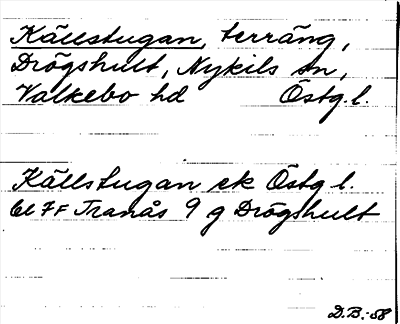 Källstugan, terräng,
Drögshult, Nykils sn,
Valkebo hd Östg.l.
Källstugan ek Östg l.
bl 7F Tranås 9 g Drögshult
D.B.-58